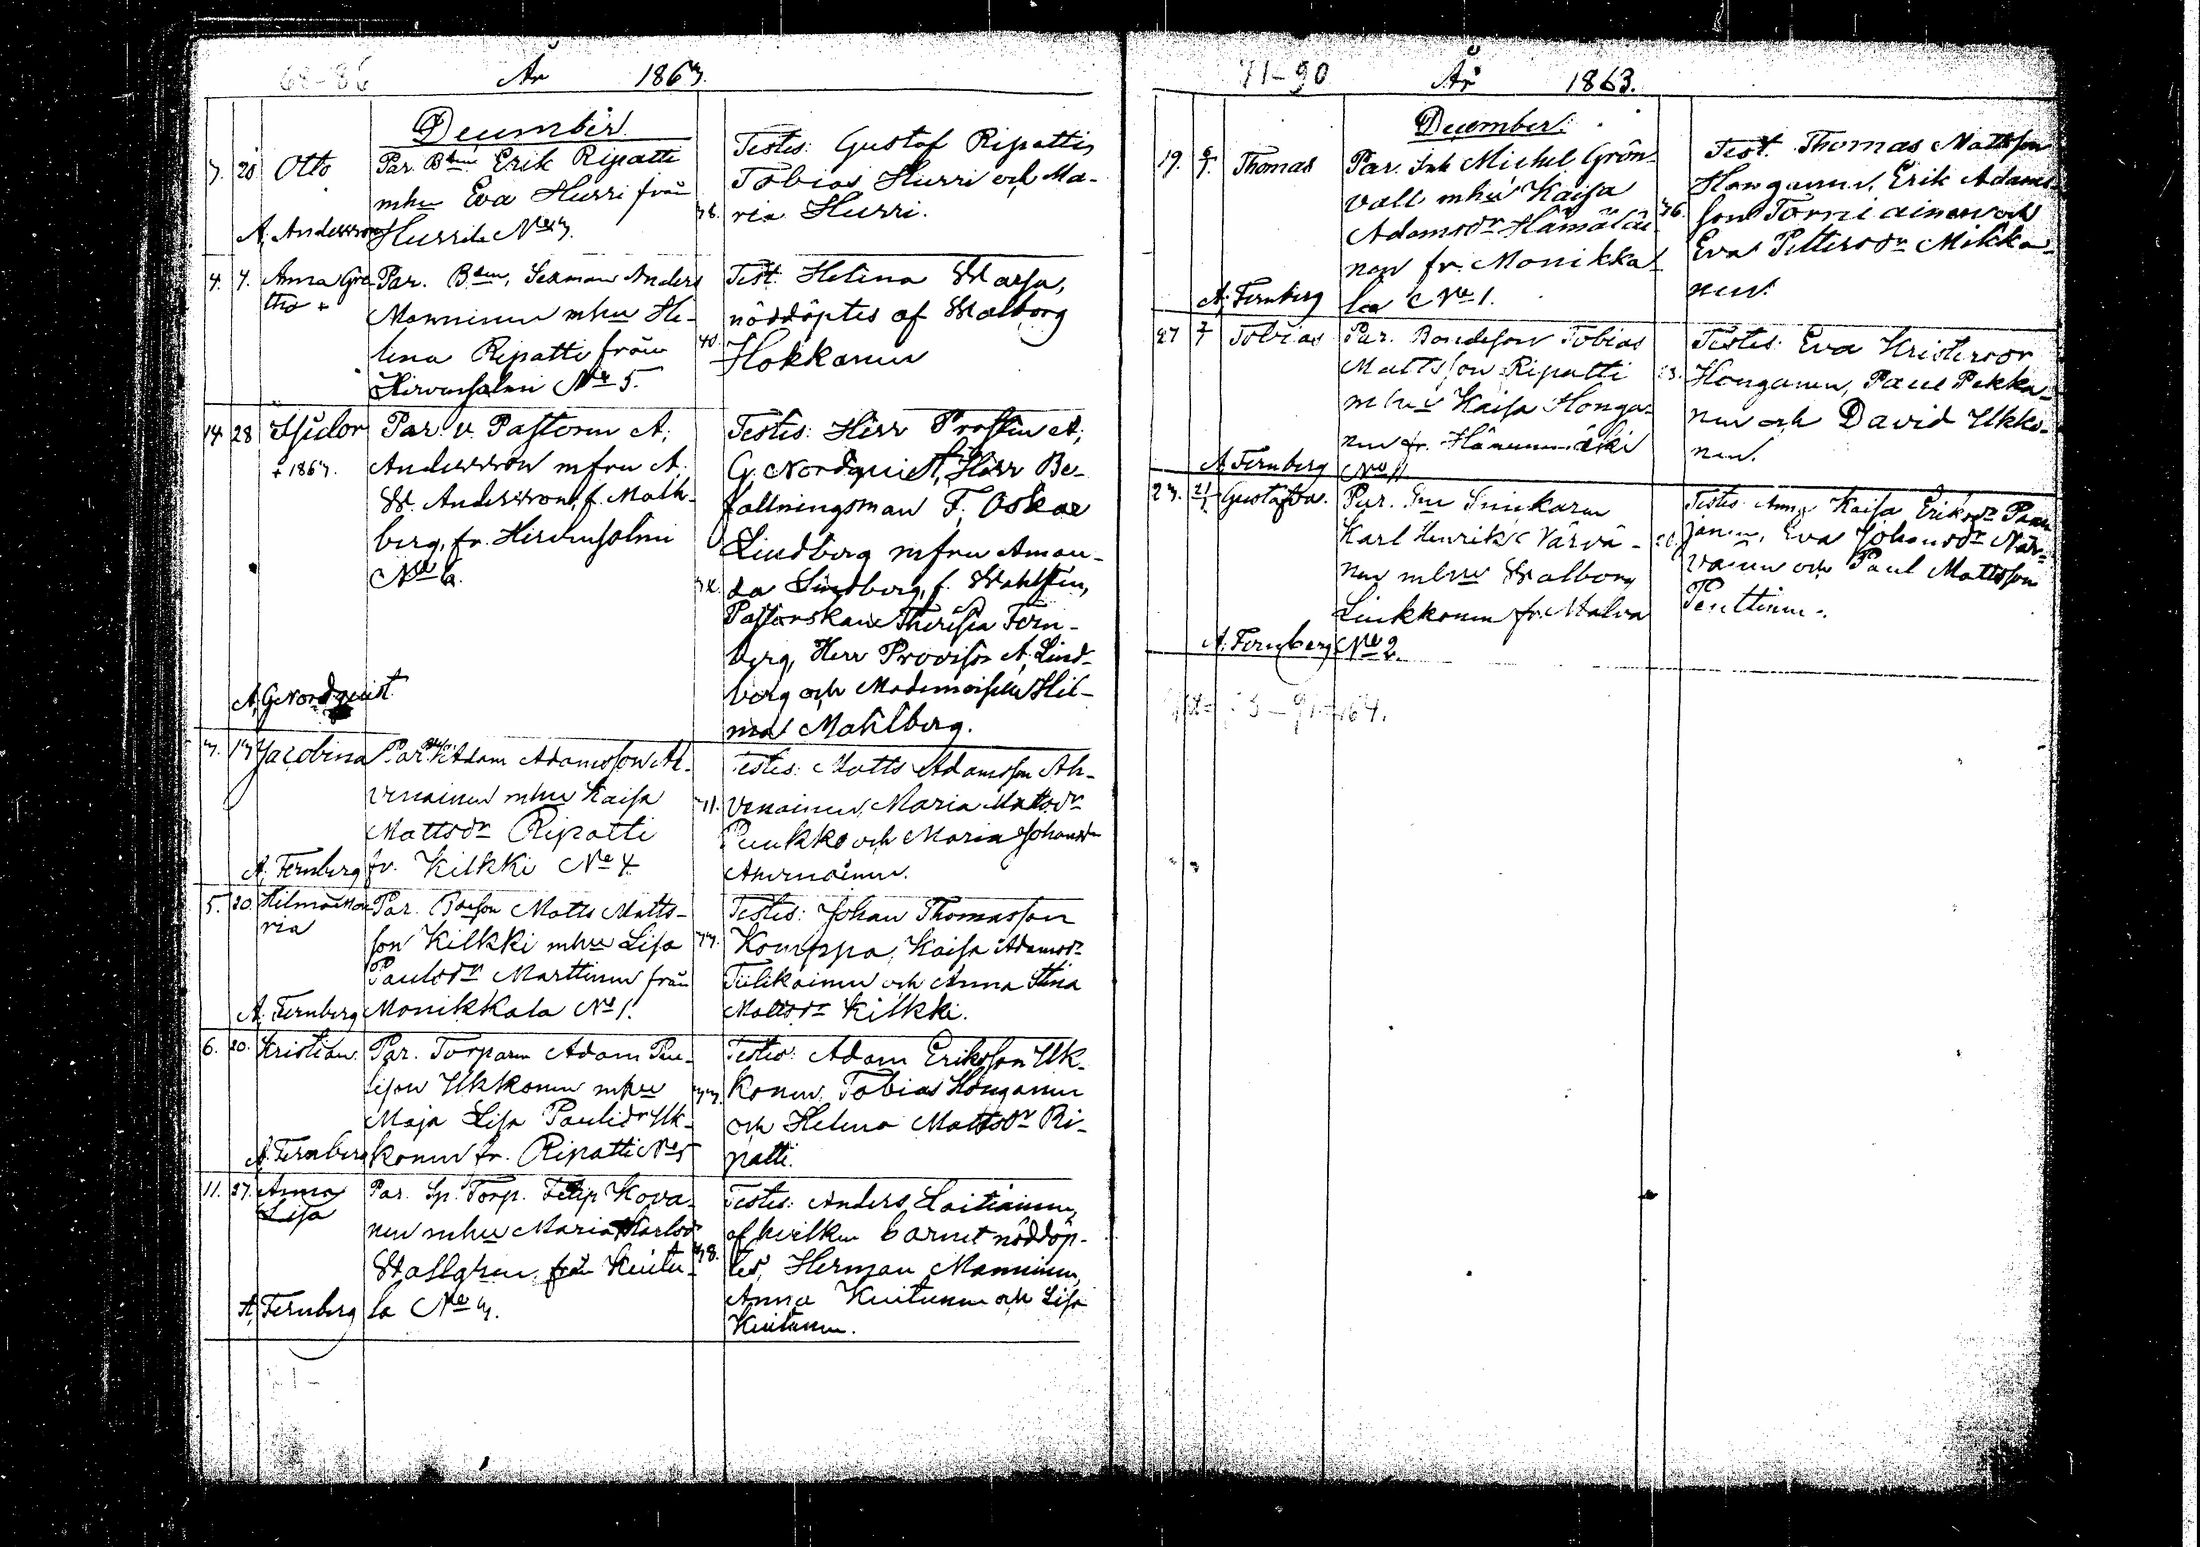 68-86 År 1863.
December.
3. 20 Otto Par. Bden Erik Ripatti
mhu Eva Hurri från
A. Andersson Hurrila No 3.
Testes: Gustaf Ripatti,
Tobias Hurri och Ma-
38. ria Hurri.
4. 7. Anna Gre- Par. Bden, Sexman Anders
tha + Manninen mhu He-
lina Ripatti från
Hirvensalmi No 5.
Test. Helena Marja,
nöddöptes af Walborg
40. Hokkanen
14 28 Isidor Par. v. Pastorn A.
+ 1867. Andersson mfru A.
W. Andersson, f. Mahl-
berg, fr. Hirvensalmi
No 6.
A. G. Nordquist
Testes: Herr Prosten A.
G. Nordquist, Herr Be-
fallningsman F. Oskar
Lindberg mfru Aman-
da Lindberg, f. Wahlsten,
Pastorskan Theresia Fern-
berg, Herr Provisor A. Lind-
berg och Mademoiselle Hil-
ma Mahlberg.
3. 13 Jacobina Par. Adam Adamsson Ah-
venainen mhu Kaisa
Mattsdr Ripatti
A. Fernberg fr. Kilkki No 4
Testes: Matts Adamsson Ah-
31. venainen, Maria Mattsdr
Puukko och Maria Johansdr
Ahvenainen.
5. 20. Hilma Ma- Par. Bonson Matts Matts-
ria son Kilkki mhu Lisa
Paulsdr Marttinen från
A. Fernberg Monikkala No 1.
Testes: Johan Thomasson
33. Komppa, Kaisa Adamsdr
Tiilikainen och Anna Stina
Mattsdr Kilkki.
6. 20. Kristian. Par. Torparen Adam Pau-
lsson Ukkonen mhu
Maja Lisa Paulsdr Uk-
A. Fernberg konen fr. Ripatti No 5
Testes: Adam Eriksson Uk-
33. konen, Tobias Honganen
och Helena Mattsdr Ri-
patti.
11. 27. Anna Par. Sp. Torp. Filip Kova-
Lisa nen mhu Maria Karlsdr
Wallgren, från Kuitu-
A. Fernberg la No 3.
Testes: Anders Laitiainen,
af hvilken barnet nöddöp-
38. tes, Herman Manninen,
Anna Kuitunen och Lisa
Kuitunen.
71-90 År 1863.
December.
19. Thomas Par. Inh Michel Grön-
vall mhu Kaisa
Adamsdr Hämäläi-
nen fr. Monikka-
A. Fernberg la No 1.
Test. Thomas Mattsson
Honganen, Erik Adams-
36. son Torniainen och
Eva Pettersdr Mikko-
nen.
27 Tobias Par. Bondeson Tobias
Mattsson Ripatti
mhu Kaisa Honga-
nen fr. Hämeenmäki
A. Fernberg No 11
Testes: Eva Kristersdr
Honganen, Paul Pekka-
nen och David Ukko-
nen.
23. Gustafva. Par. Snickaren
Karl Henrik Värvä-
nen mhu Walborg
Liukkonen fr. Malva
A. Fernberg No 2.
Testes: Anna Kaisa Eriksdr Paan-
janen, Eva Johansdr När-
vänen och Paul Mattsson
Penttinen.